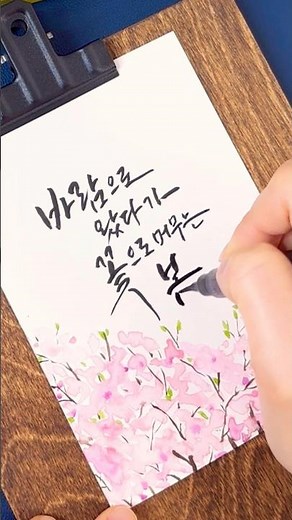 바람으로
왔다가
꽃으로 머무는
보